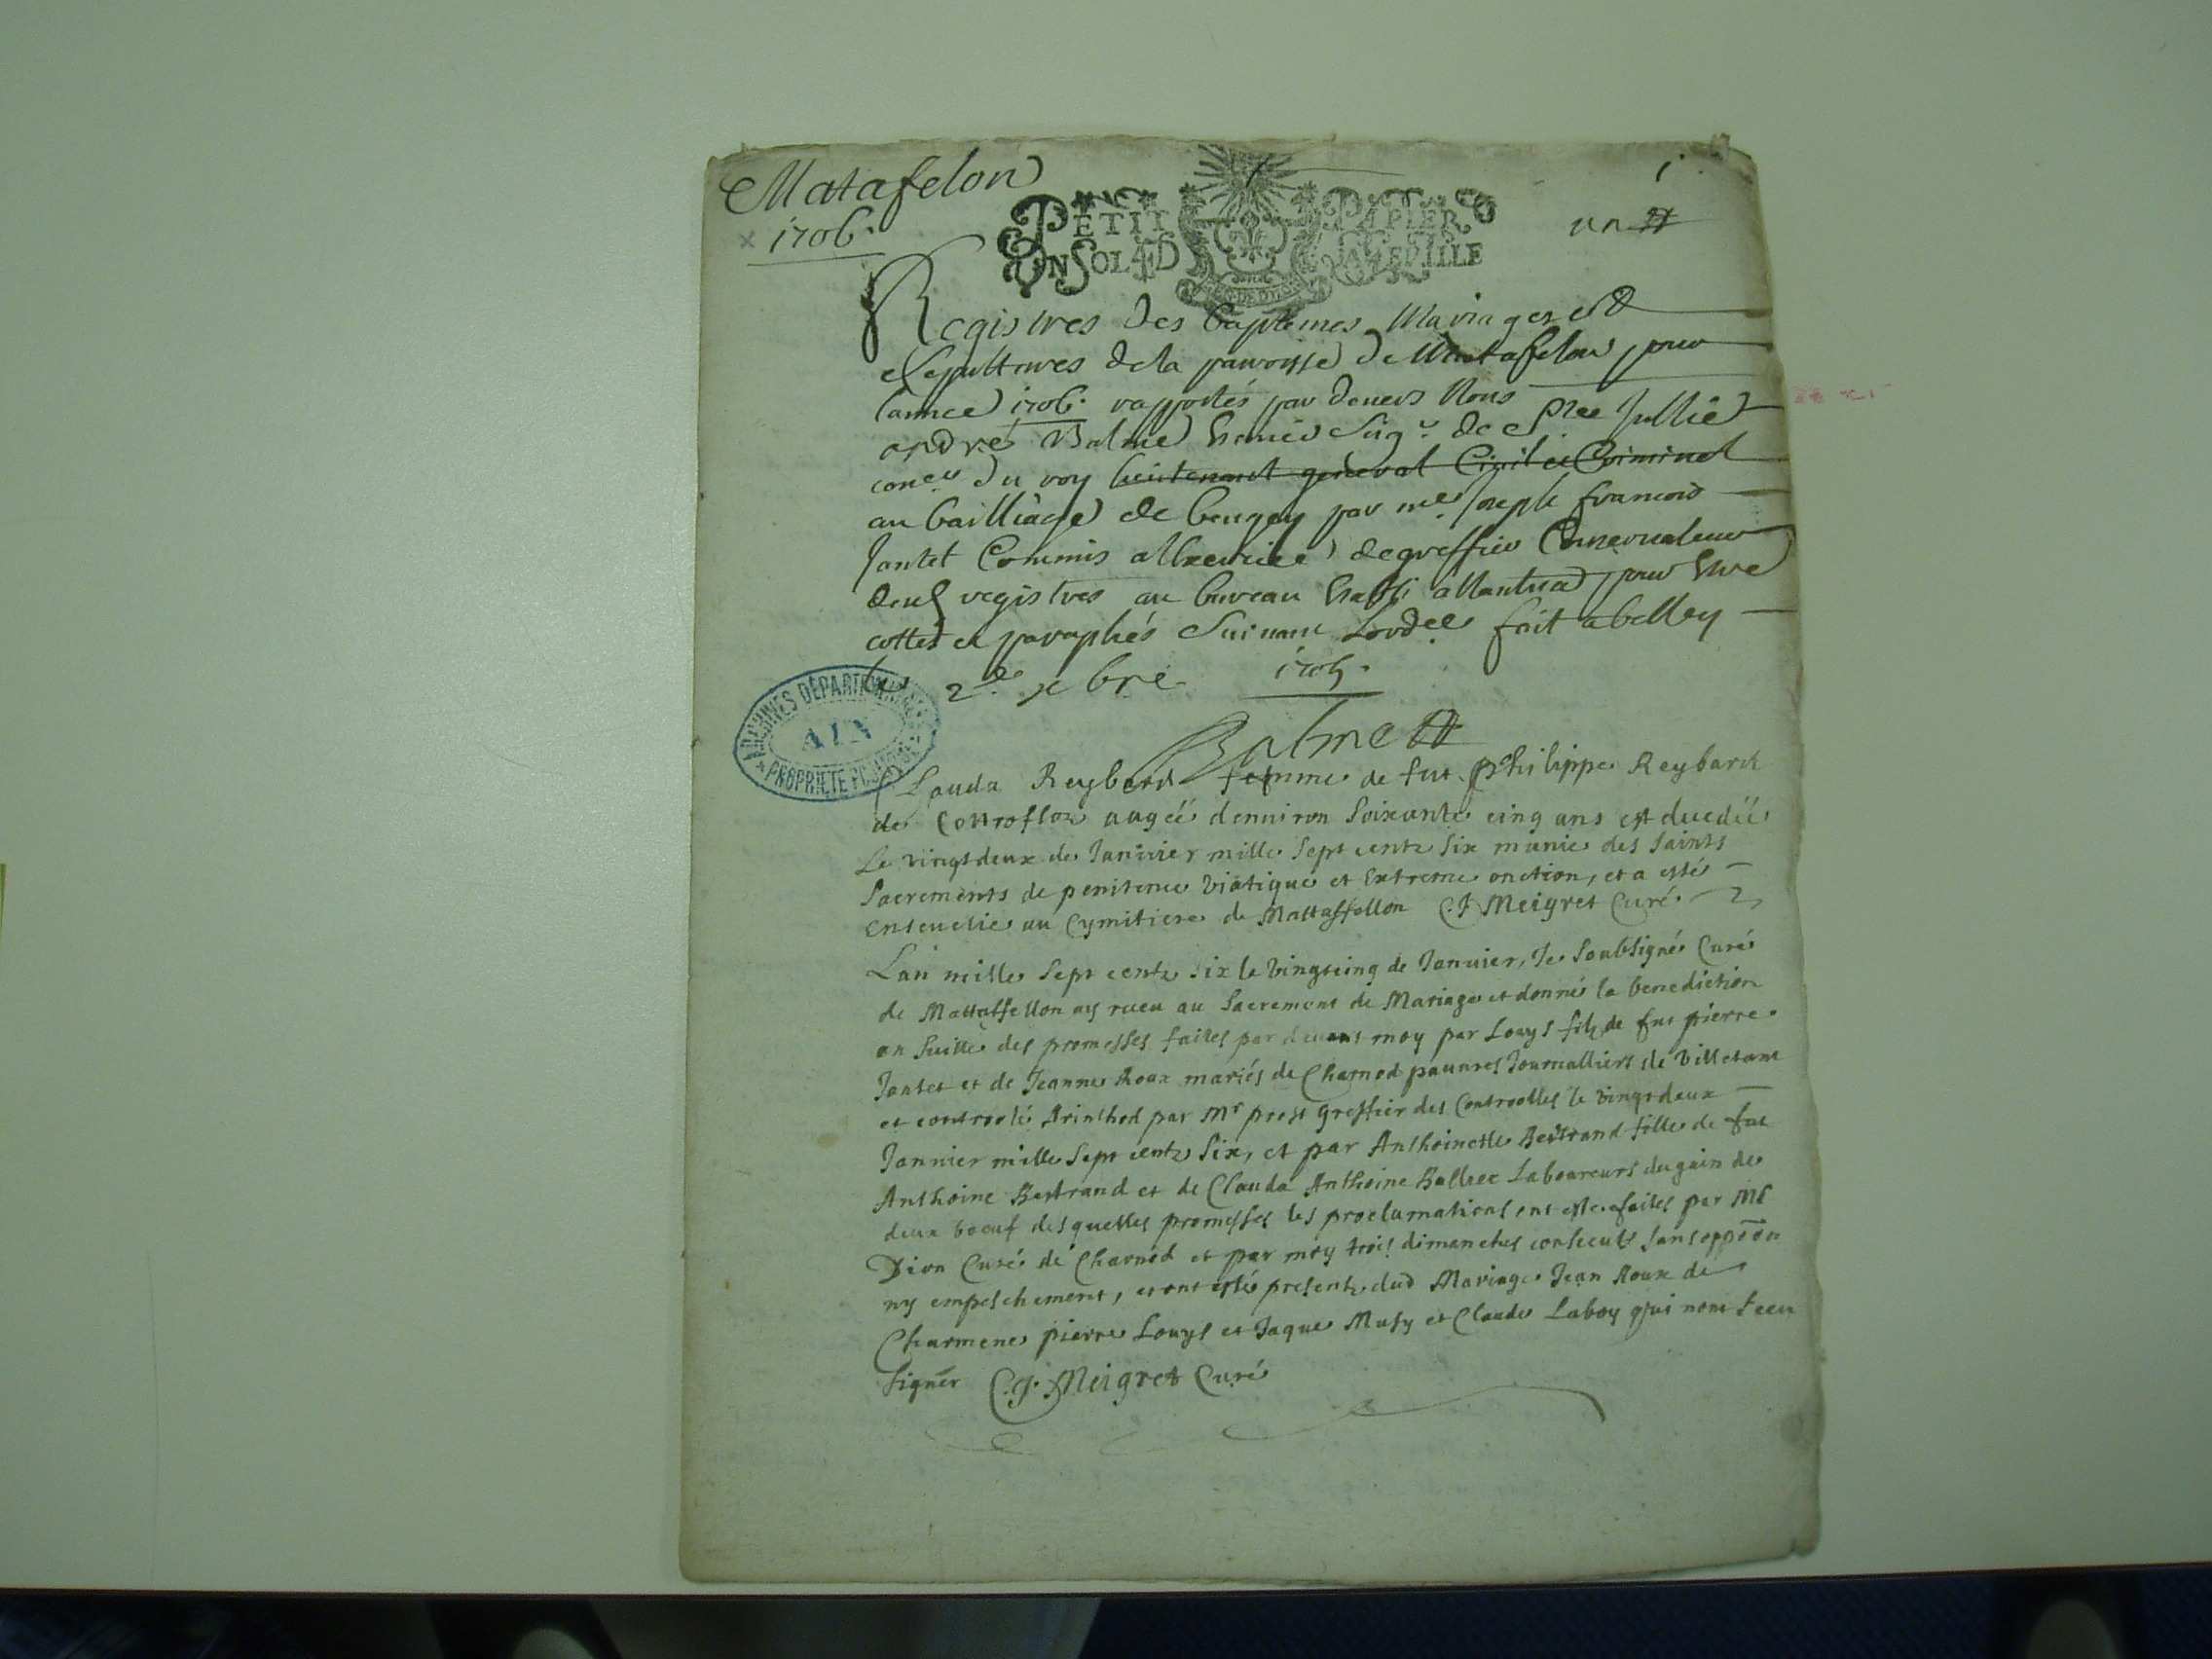 Matafelon
1706.
PETIT PAPIER
UN SOL 4 D LA FEUILLE
1
un
Registres des baptemes Mariages et
Sepultures de la parroisse de Matafelon pour
lannee 1706. rapportés par devers Nous
andré Balme de Ste Jullie
con.er du roy lieutenant general Civil et Criminel
au bailliage de beugey par me. Joseph francois
Jantet Commis a lexercice de greffier Conservateur
desd registres au bureau Establi a Nantua pour Estre
cottés et paraphés Suivant Lord.ce fait a belley
le 2.e xbre 1705.
Balme
ARCHIVES DÉPARTEMENTALES
AIN
PROPRIÉTÉ PUBLIQUE
Clauda Reybard femme de fut Philippe Reybard
de Cottrofloz aagéé denuiron Soixante cinq ans est decedéé
Le vingtdeux de Januier mille Sept centz Six munie des Saints
Sacrements de penitence Viatique et Extreme onction, et a esté
Enseuelie au Cymitiere de Mattaffellon C. J Meigret Curé
Lan mille Sept centz Six le Vingtcinq de Januier, Je Soubsigné Curé
de Mattaffellon ay receu au Sacrement de Mariage et donné la benediction
en Suitte des promesses faites par deuant moy par Louys filz de fut pierre
Jantet et de Jeanne Roux mariés de Charnod pauures Journalliers de Villetant
et controolé Arinthod par Mr prost Greffier des Controolles le Vingtdeux
Januier mille Sept centz Six, et par Anthoinette Bertrand fille de fut
Anthoine Bertrand et de Clauda Anthoine Ballet Laboureurs du gain de
deux boeuf desquelles promesses les proclamations ont este faites par Mr
Dion Curé de Charnod et par moy trois dimanches consecutifs Sans opp͞on
ny empeschement, et ont esté presentz dud Mariage Jean Roux de
Charmene pierre Louys et Jaque Musy et Claude Laboy qui nont Sceu
Signer C. J. Meigret Curé